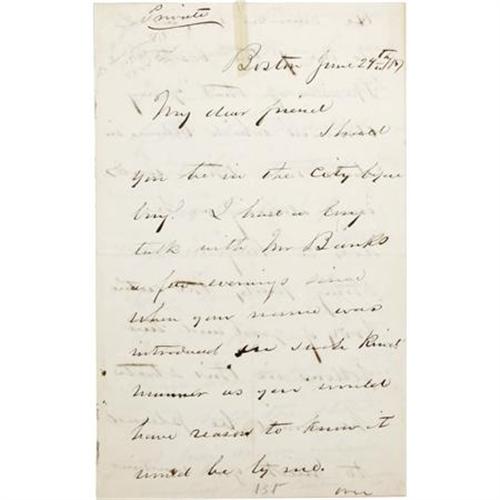 Private
Boston June 29th
My dear friend
Should
you be in the City before
long? I had a long
talk with Mr Banks
a few evenings since
when your name was
introduced in such kind
manner as you would
have reason to know it
would be by me.
135
over